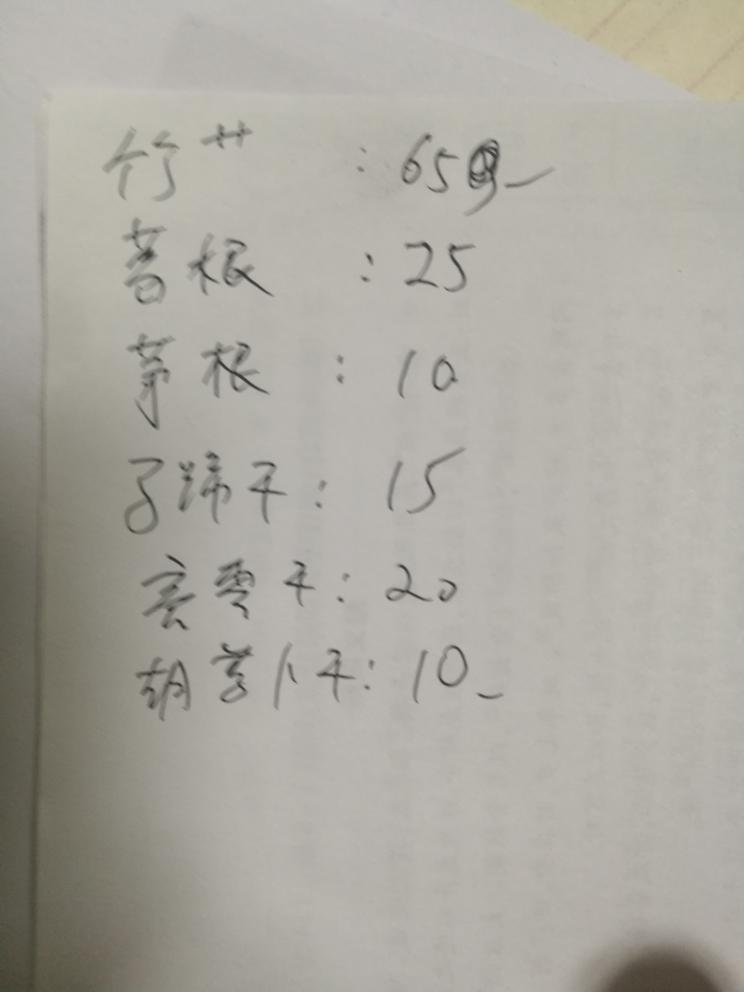 竹艹 : 65
葛根 : 25
茅根 : 10
马蹄干 : 15
麦枣干 : 20
胡萝卜干 : 10